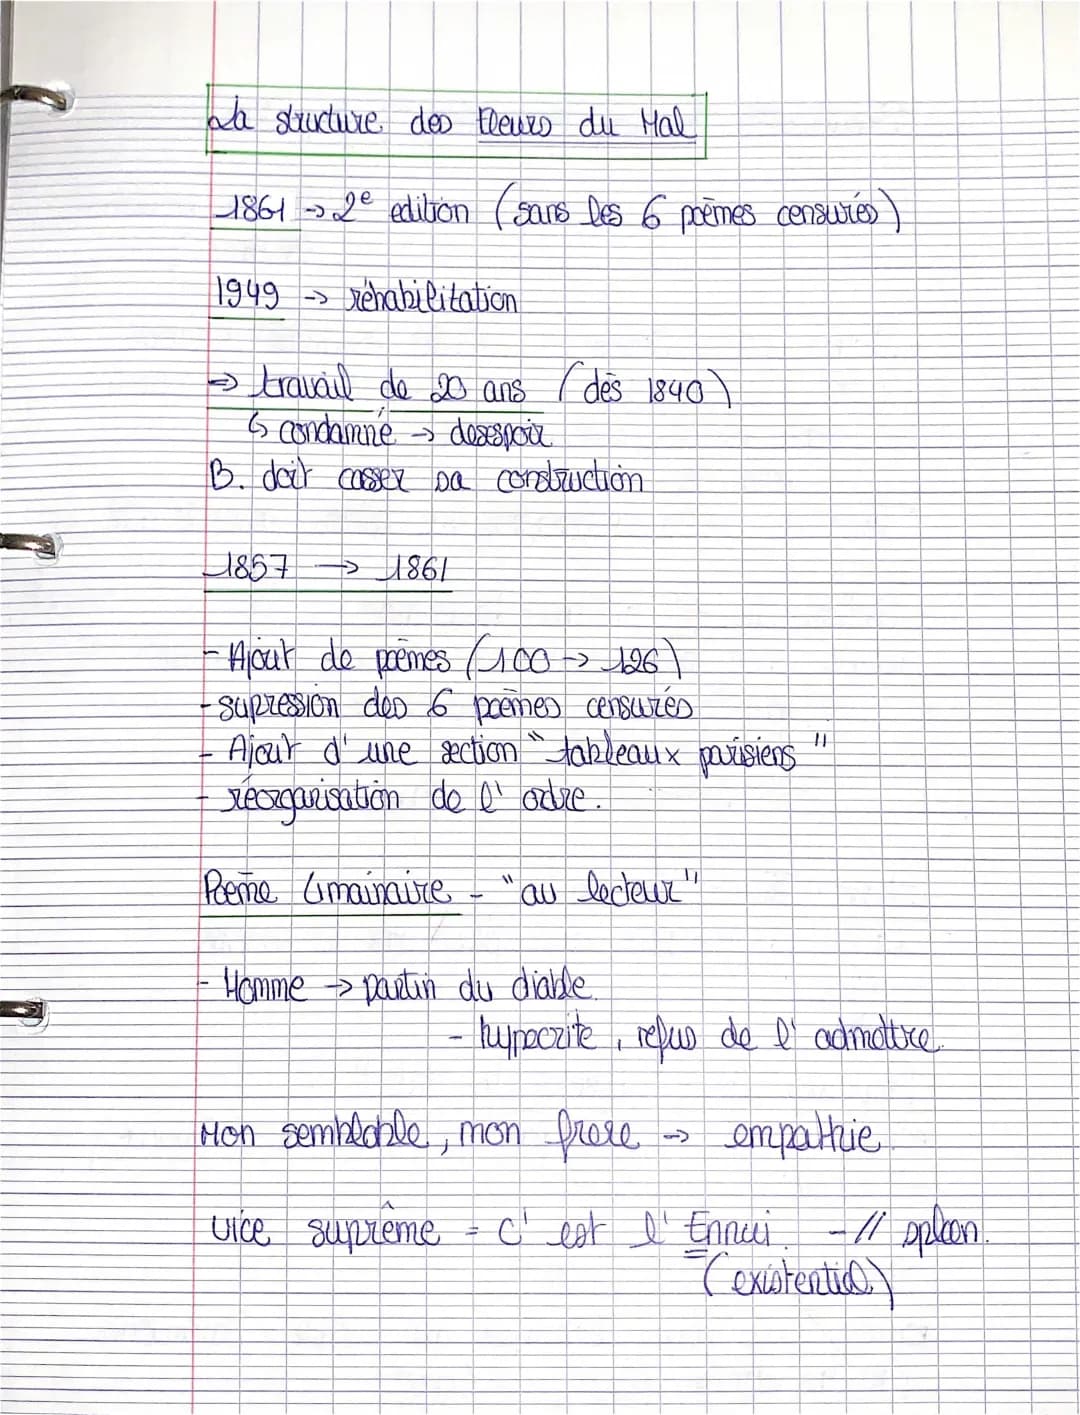 La structure des Fleurs du Mal
1861 → 2e edition (sans les 6 poèmes censurés)
1949 → réhabilitation
⇒ travail de 20 ans (dès 1840)
↳ condamné → desespoir
B. doit casser sa construction
1857 → 1861
- Ajout de poèmes (100 → 126)
- supression des 6 poèmes censurés
- Ajout d'une section "tableaux parisiens"
- réorganisation de l'ordre.
Poème limainaire - "au lecteur"
- Homme → pantin du diable.
- hypocrite, refus de l'admettre.
Mon semblable, mon frere → empathie.
vice suprême = c'est l'Ennui. - // spleen.
(existentiel)